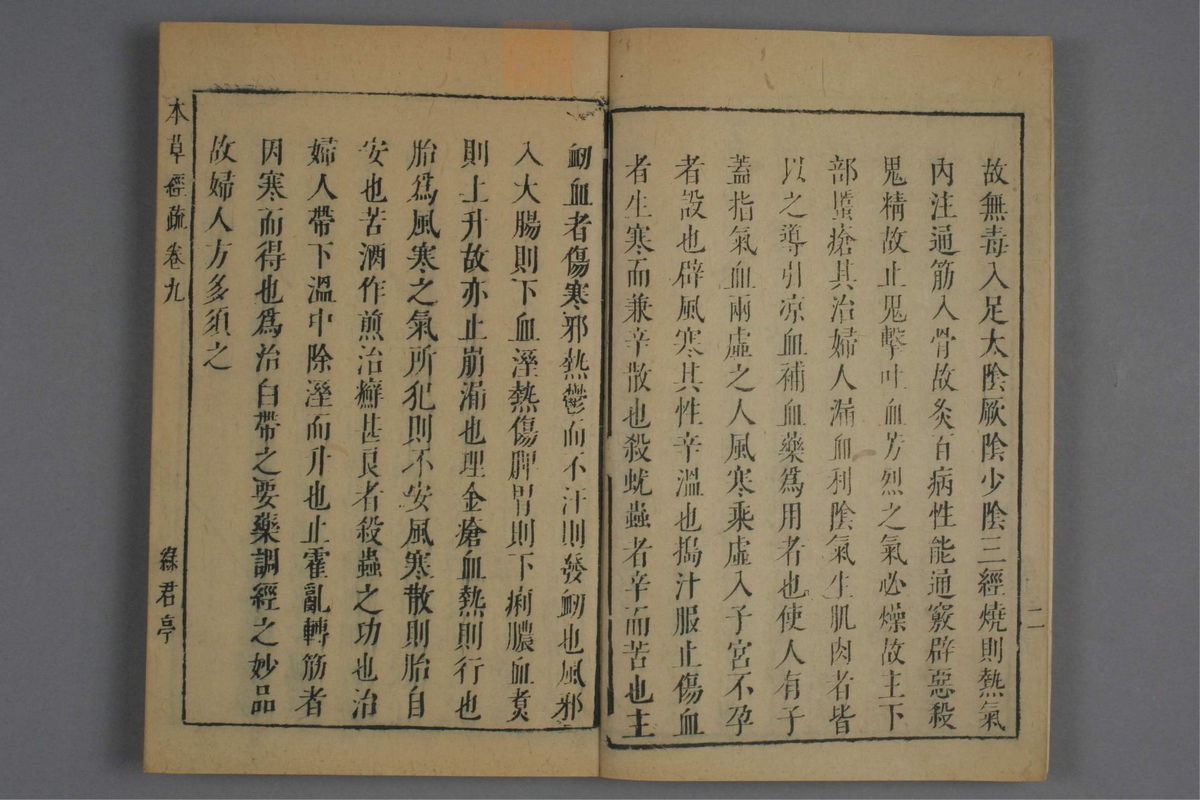 故無毒入足太陰厥陰少陰三經燒則熱氣
內注通筋入骨故灸百病性能通竅辟惡殺
鬼精故止鬼擊吐血芳烈之氣必燥故主下
部䘌瘡其治婦人漏血利陰氣生肌肉者皆
以之導引凉血補血藥爲用者也使人有子
蓋指氣血兩虛之人風寒乘虛入子宮不孕
者設也辟風寒其性辛溫也搗汁服止傷血
者生寒而兼辛散也殺蚘蟲者辛而苦也主
衂血者傷寒邪熱鬱而不汗則發衂也風邪
入大腸則下血溼熱傷脾胃則下痢膿血熱
則上升故亦止崩漏也理金瘡血熱則行也
胎爲風寒之氣所犯則不安風寒散則胎自
安也苦酒作煎治癬甚良者殺蟲之功也治
婦人帶下溫中除溼而升也止霍亂轉筋者
因寒而得也爲治白帶之要藥調經之妙品
故婦人方多須之
本草經疏卷九
綠君亭
二